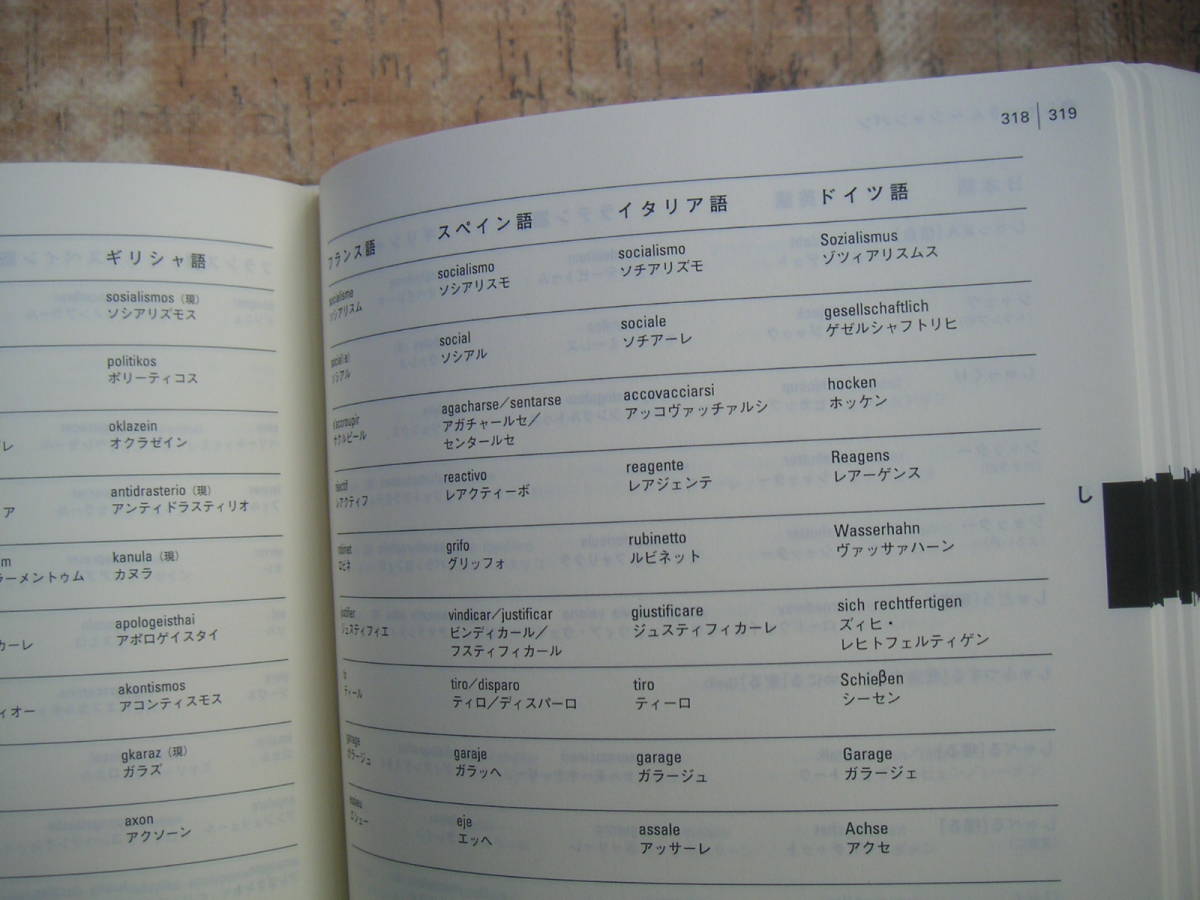 318 319
ギリシャ語
sosialismos（現）
ソシアリズモス
politikos
ポリーティコス
oklazein
オクラゼイン
antidrasterio（現）
アンティドラスティリオ
ア
kanula（現）
カヌラ
ラーメントゥム
apologeisthai
アポロゲイスタイ
カーレ
akontismos
アコンティスモス
ィオー
gkaraz（現）
ガラズ
axon
アクソーン
フランス語 スペイン語 イタリア語 ドイツ語
socialisme socialismo socialismo Sozialismus
ソシアリスム ソシアリスモ ソチアリズモ ゾツィアリスムス
social(e) social sociale gesellschaftlich
ソシアル ソシアル ソチアーレ ゲゼルシャフトリヒ
s'accroupir agacharse／sentarse accovacciarsi hocken
サクルピール アガチャールセ／ アッコヴァッチァルシ ホッケン
センタールセ
réactif reactivo reagente Reagens
レアクティフ レアクティーボ レアジェンテ レアーゲンス
robinet grifo rubinetto Wasserhahn
ロビネ グリッフォ ルビネット ヴァッサァハーン
justifier vindicar／justificar giustificare sich rechtfertigen
ジュスティフィエ ビンディカール／ ジュスティフィカーレ ズィヒ・
フスティフィカール レヒトフェルティゲン
tiro/disparo tiro Schieβen
ティール ティロ／ディスパーロ ティーロ シーセン
garage garaje garage Garage
ガラージュ ガラッヘ ガラージュ ガラージェ
essieu eje assale Achse
エシュー エッヘ アッサーレ アクセ
し